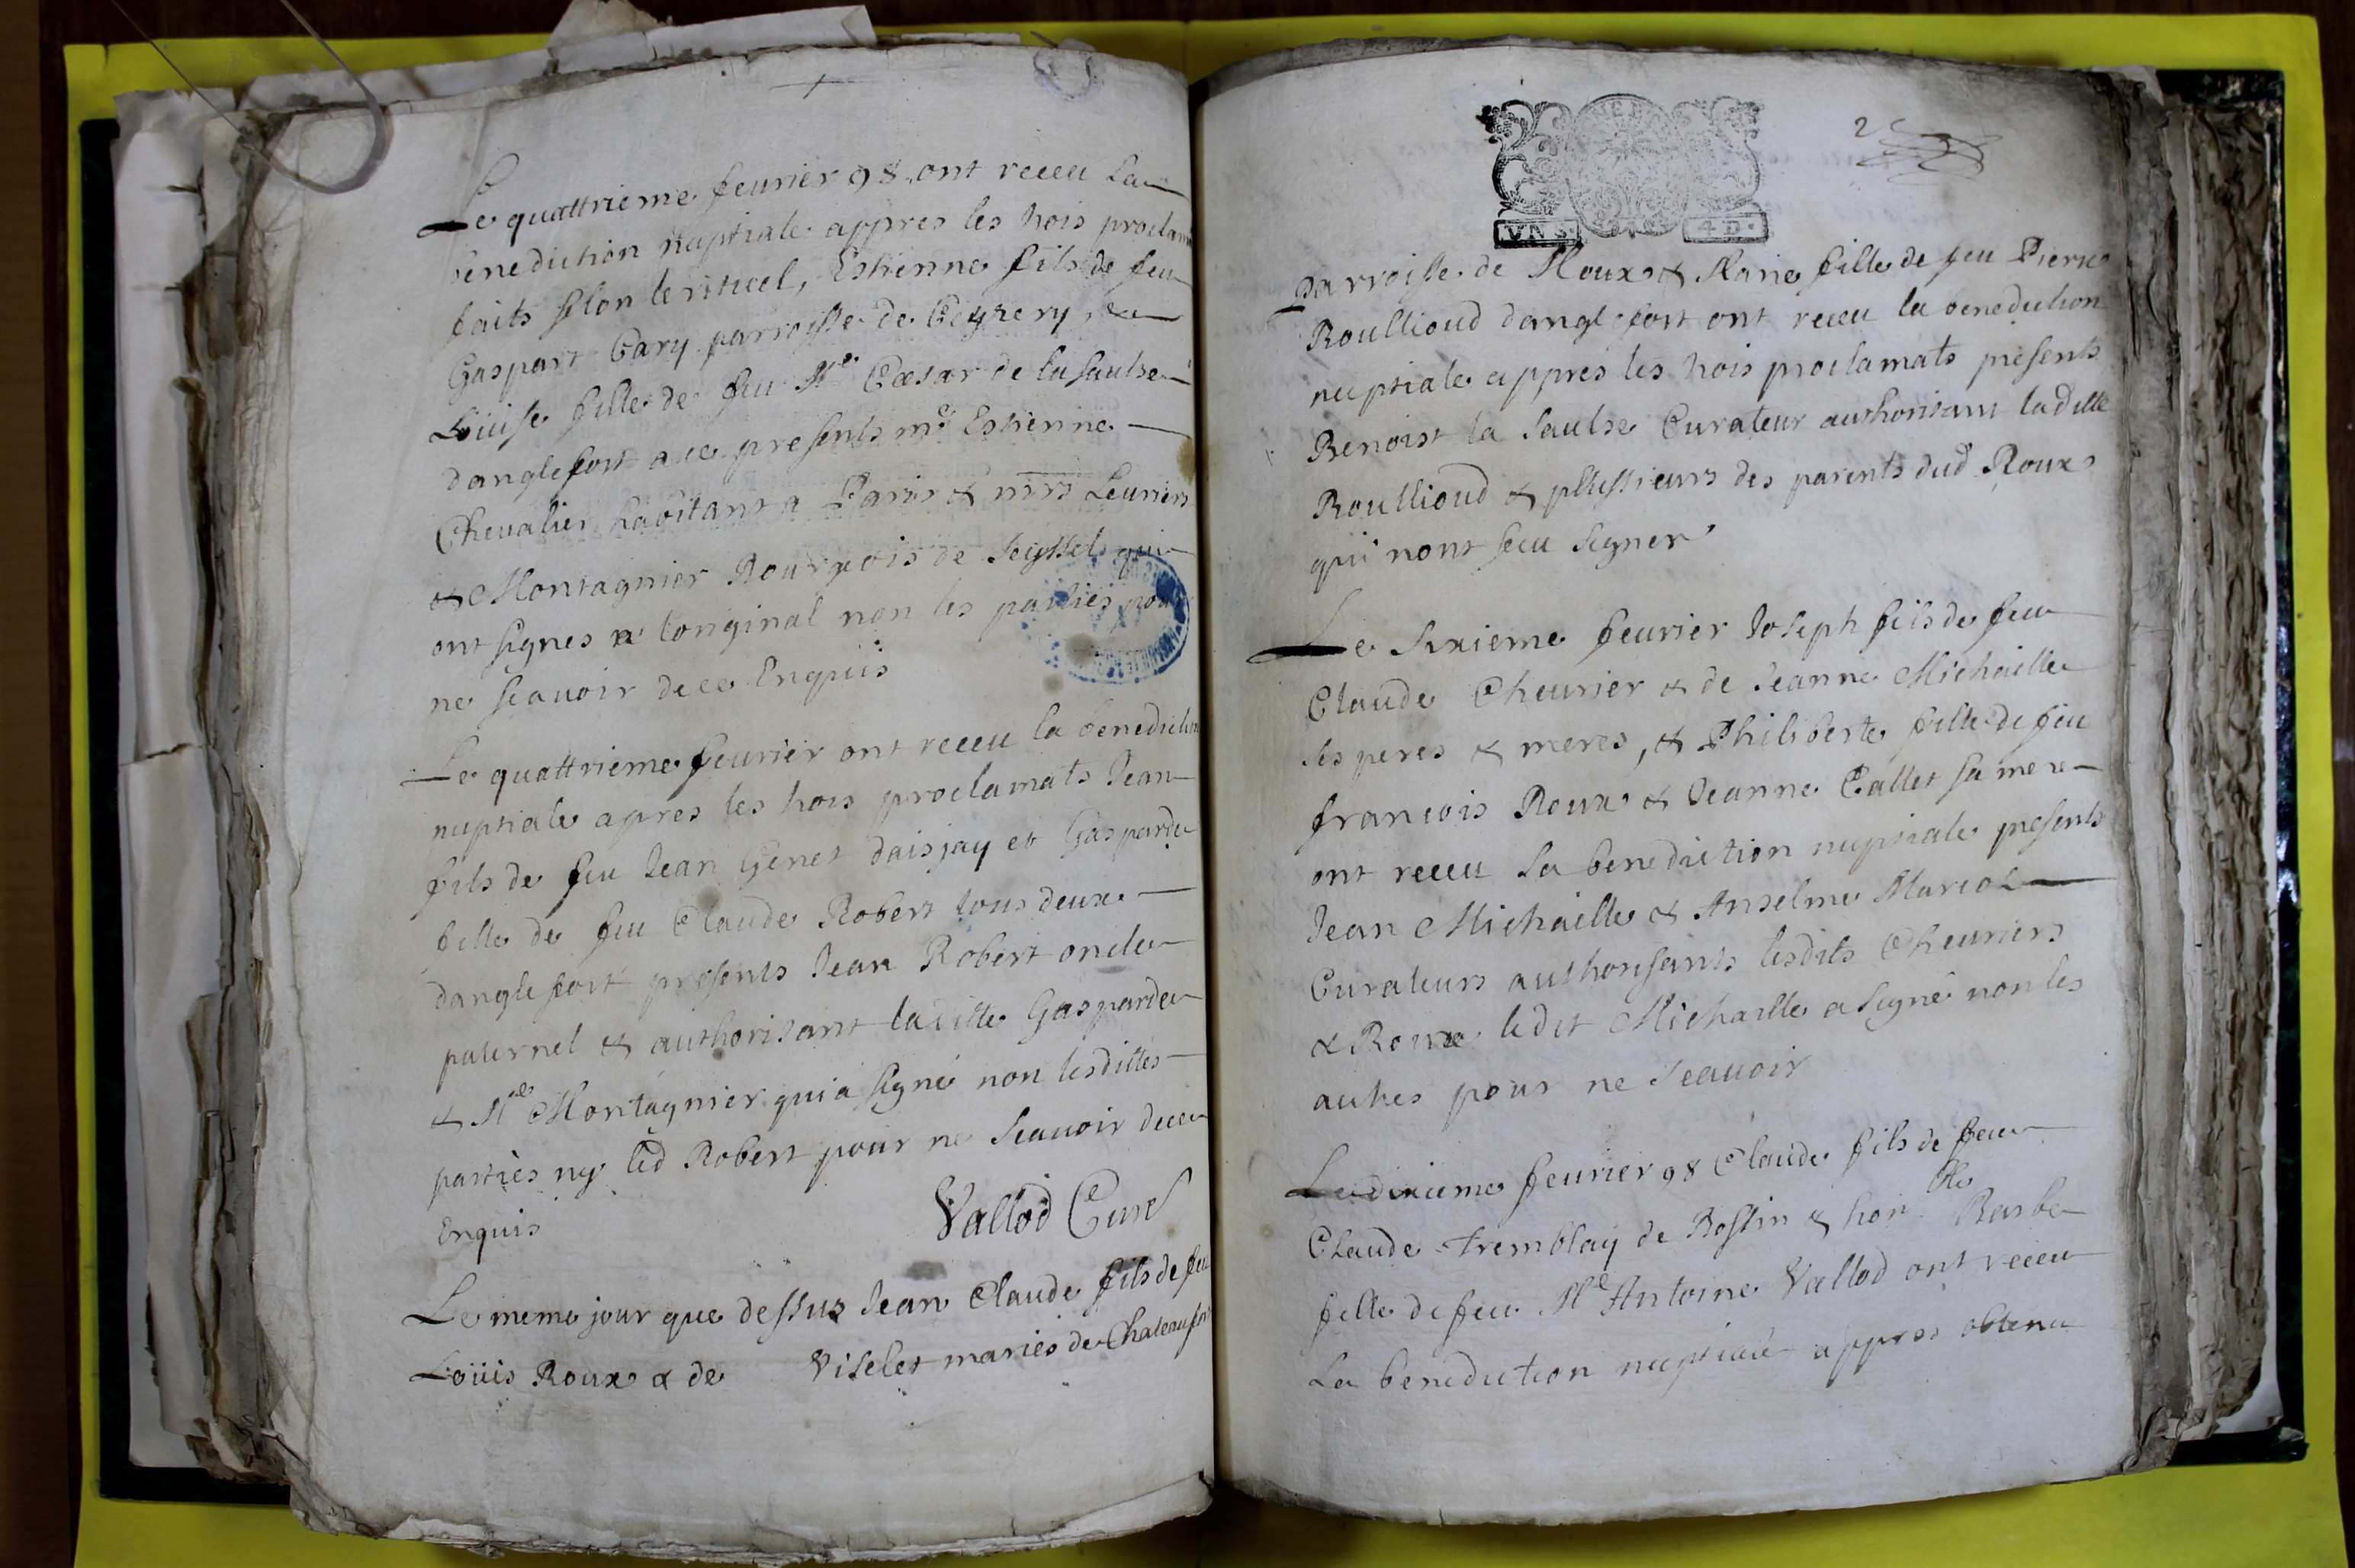 Le quattrieme feurier 98 ont receu La
benediction nuptiale appres les trois proclam
faits selon le rituel, Estienne fils de feu
Gaspart Gary parroisse de Ceyzery, &
Loüise fille de feu Mr Cæsar de la Saulse
d'anglefort a ce presents mr Estienne
Cheualier habitant a Paris & mrs Leuriers
& Montagnier Bourgeois de Seyssel qui
ont signes a loriginal non les parties pour
ne scauoir de ce Enquis
Le quattrieme feurier ont receu la benediction
nuptiale apres les trois proclamats Jean
fils de feu Jean Genet daisjay et Gasparde
fille de feu Claude Robert tous deux
danglefort presents Jean Robert oncle
paternel & authorisant laditte Gasparde
& Mre Montagnier qui a signé non lesdittes
parties ny led Robert pour ne Scauoir de ce
Enquis
Vallod Curé
Le meme jour que dessus Jean Claude fils de feu
Loüis Roux & de Viselet mariés de Chateaufort
2
UN S. 4 D.
parroisse de Moux & Marie fille de feu Pierre
Roullioud danglefort ont receu la benediction
nuptiale appres les trois proclamats presents
Benoist la Saulse Curateur authorisant laditte
Roullioud & plussieurs des parents dud Roux
qui nont sceu signer
Le Sixieme feurier Joseph fils de feu
Claude Cheurier & de Jeanne Michaille
ses peres & meres, & Philiberte fille de feu
françois Roux & Jeanne Callet sa mere
ont receu La benediction nuptiale presents
Jean Michaille & Anselme Mariol
Curateurs authorisants lesdits Cheuriers
& Roux ledit Michaille a signé non les
autres pour ne Scauoir
Le dixieme feurier 98 Claude fils de feu
Claude Tremblay de Bossin & hon ble Barbe
fille de feu Me Antoine Vallod ont receu
La benediction nuptiale appres obtenu